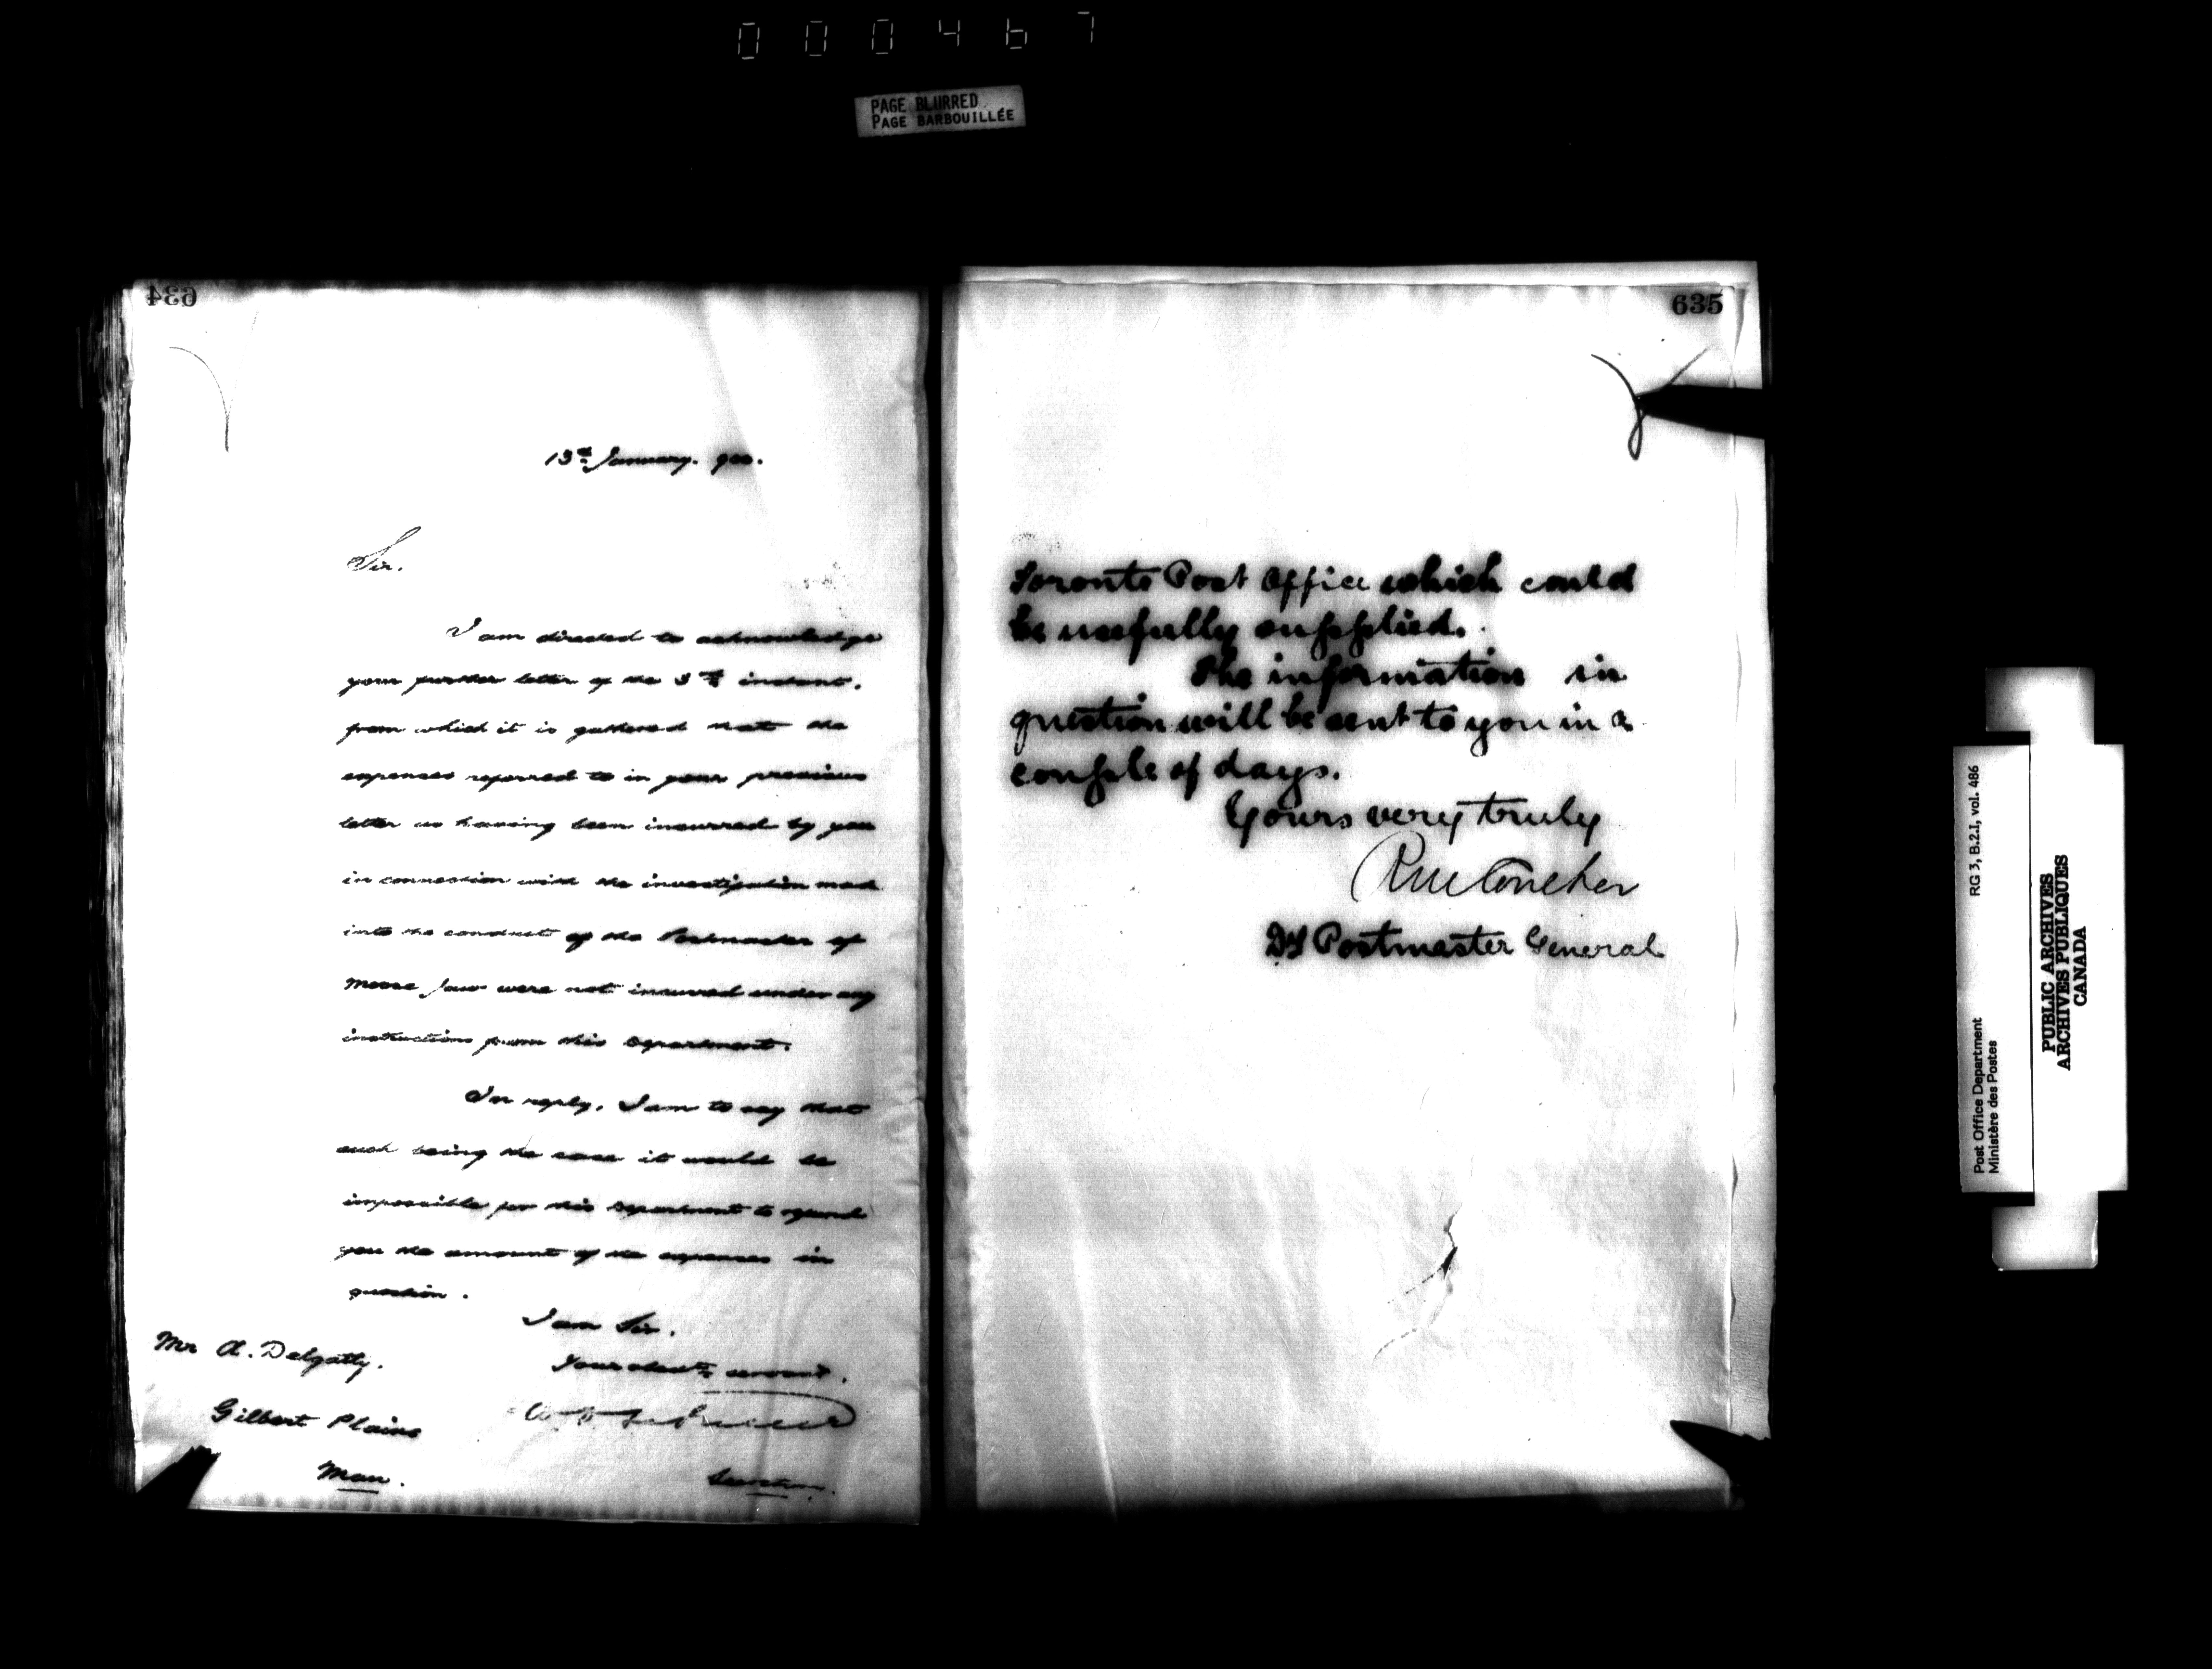 000467
PAGE BLURRED
PAGE BARBOUILLÉE
634
13th January. 900.
Sir.
I am directed to acknowledge
your further letter of the 3rd instant,
from which it is gathered that the
expenses referred to in your previous
letter as having been incurred by you
in connection with the investigation made
into the conduct of the Postmaster of
Moose Jaw were not incurred under any
instructions from this Department.
In reply, I am to say that
such being the case it would be
impossible for this Department to refund
you the amount of the expenses in
question.
I am Sir.
Your obedt servant.
Mr A. Delgatty.
Gilbert Plains
Man.
Secretary.
635
Toronto Post Office which could
be usefully supplied.
The information in
question will be sent to you in a
couple of days.
Yours very truly
RM Coulter
Dy Postmaster General
Post Office Department
Ministère des Postes
RG 3, B.2.I, vol. 486
PUBLIC ARCHIVES
ARCHIVES PUBLIQUES
CANADA